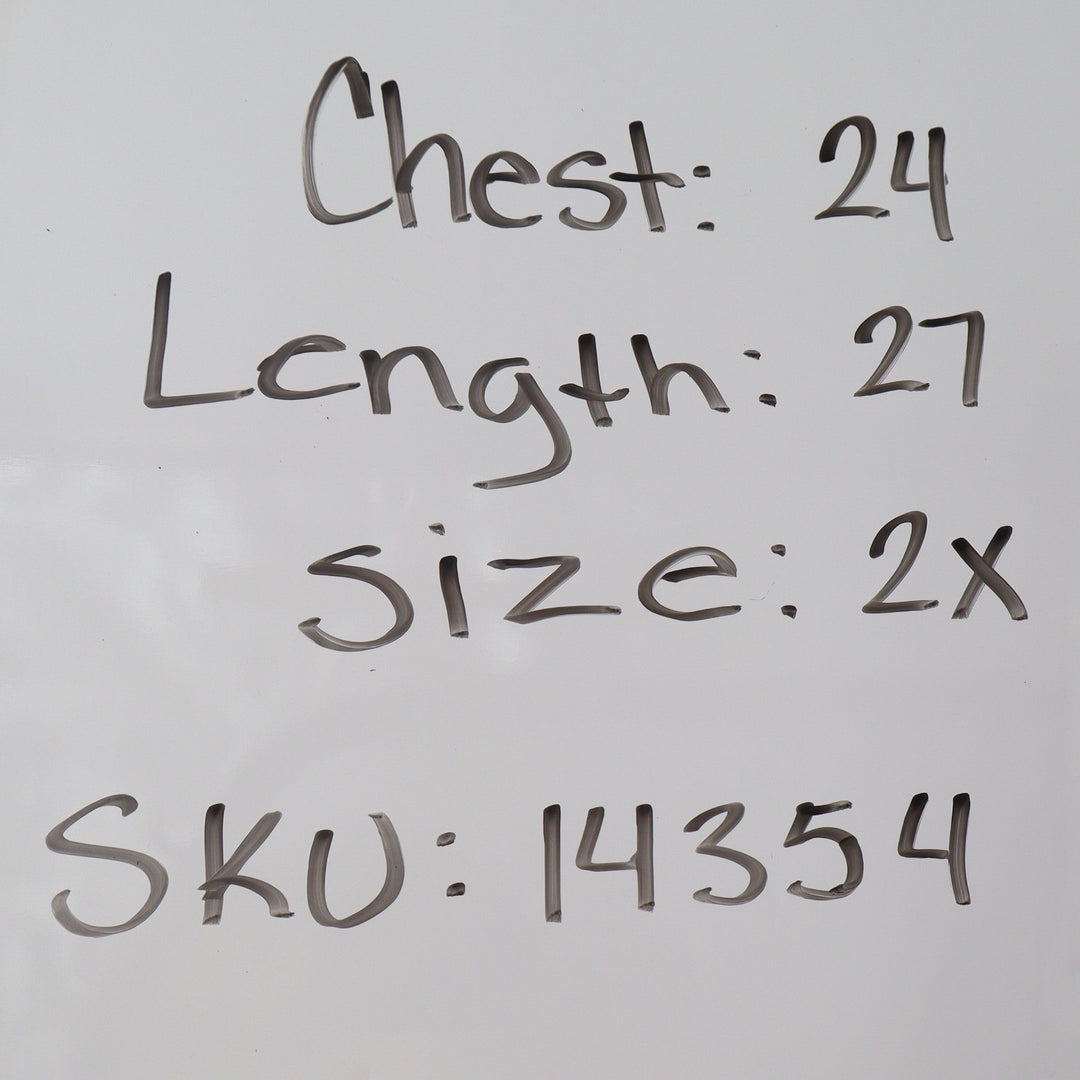 Chest: 24
Length: 27
Size: 2X
SKU: 14354